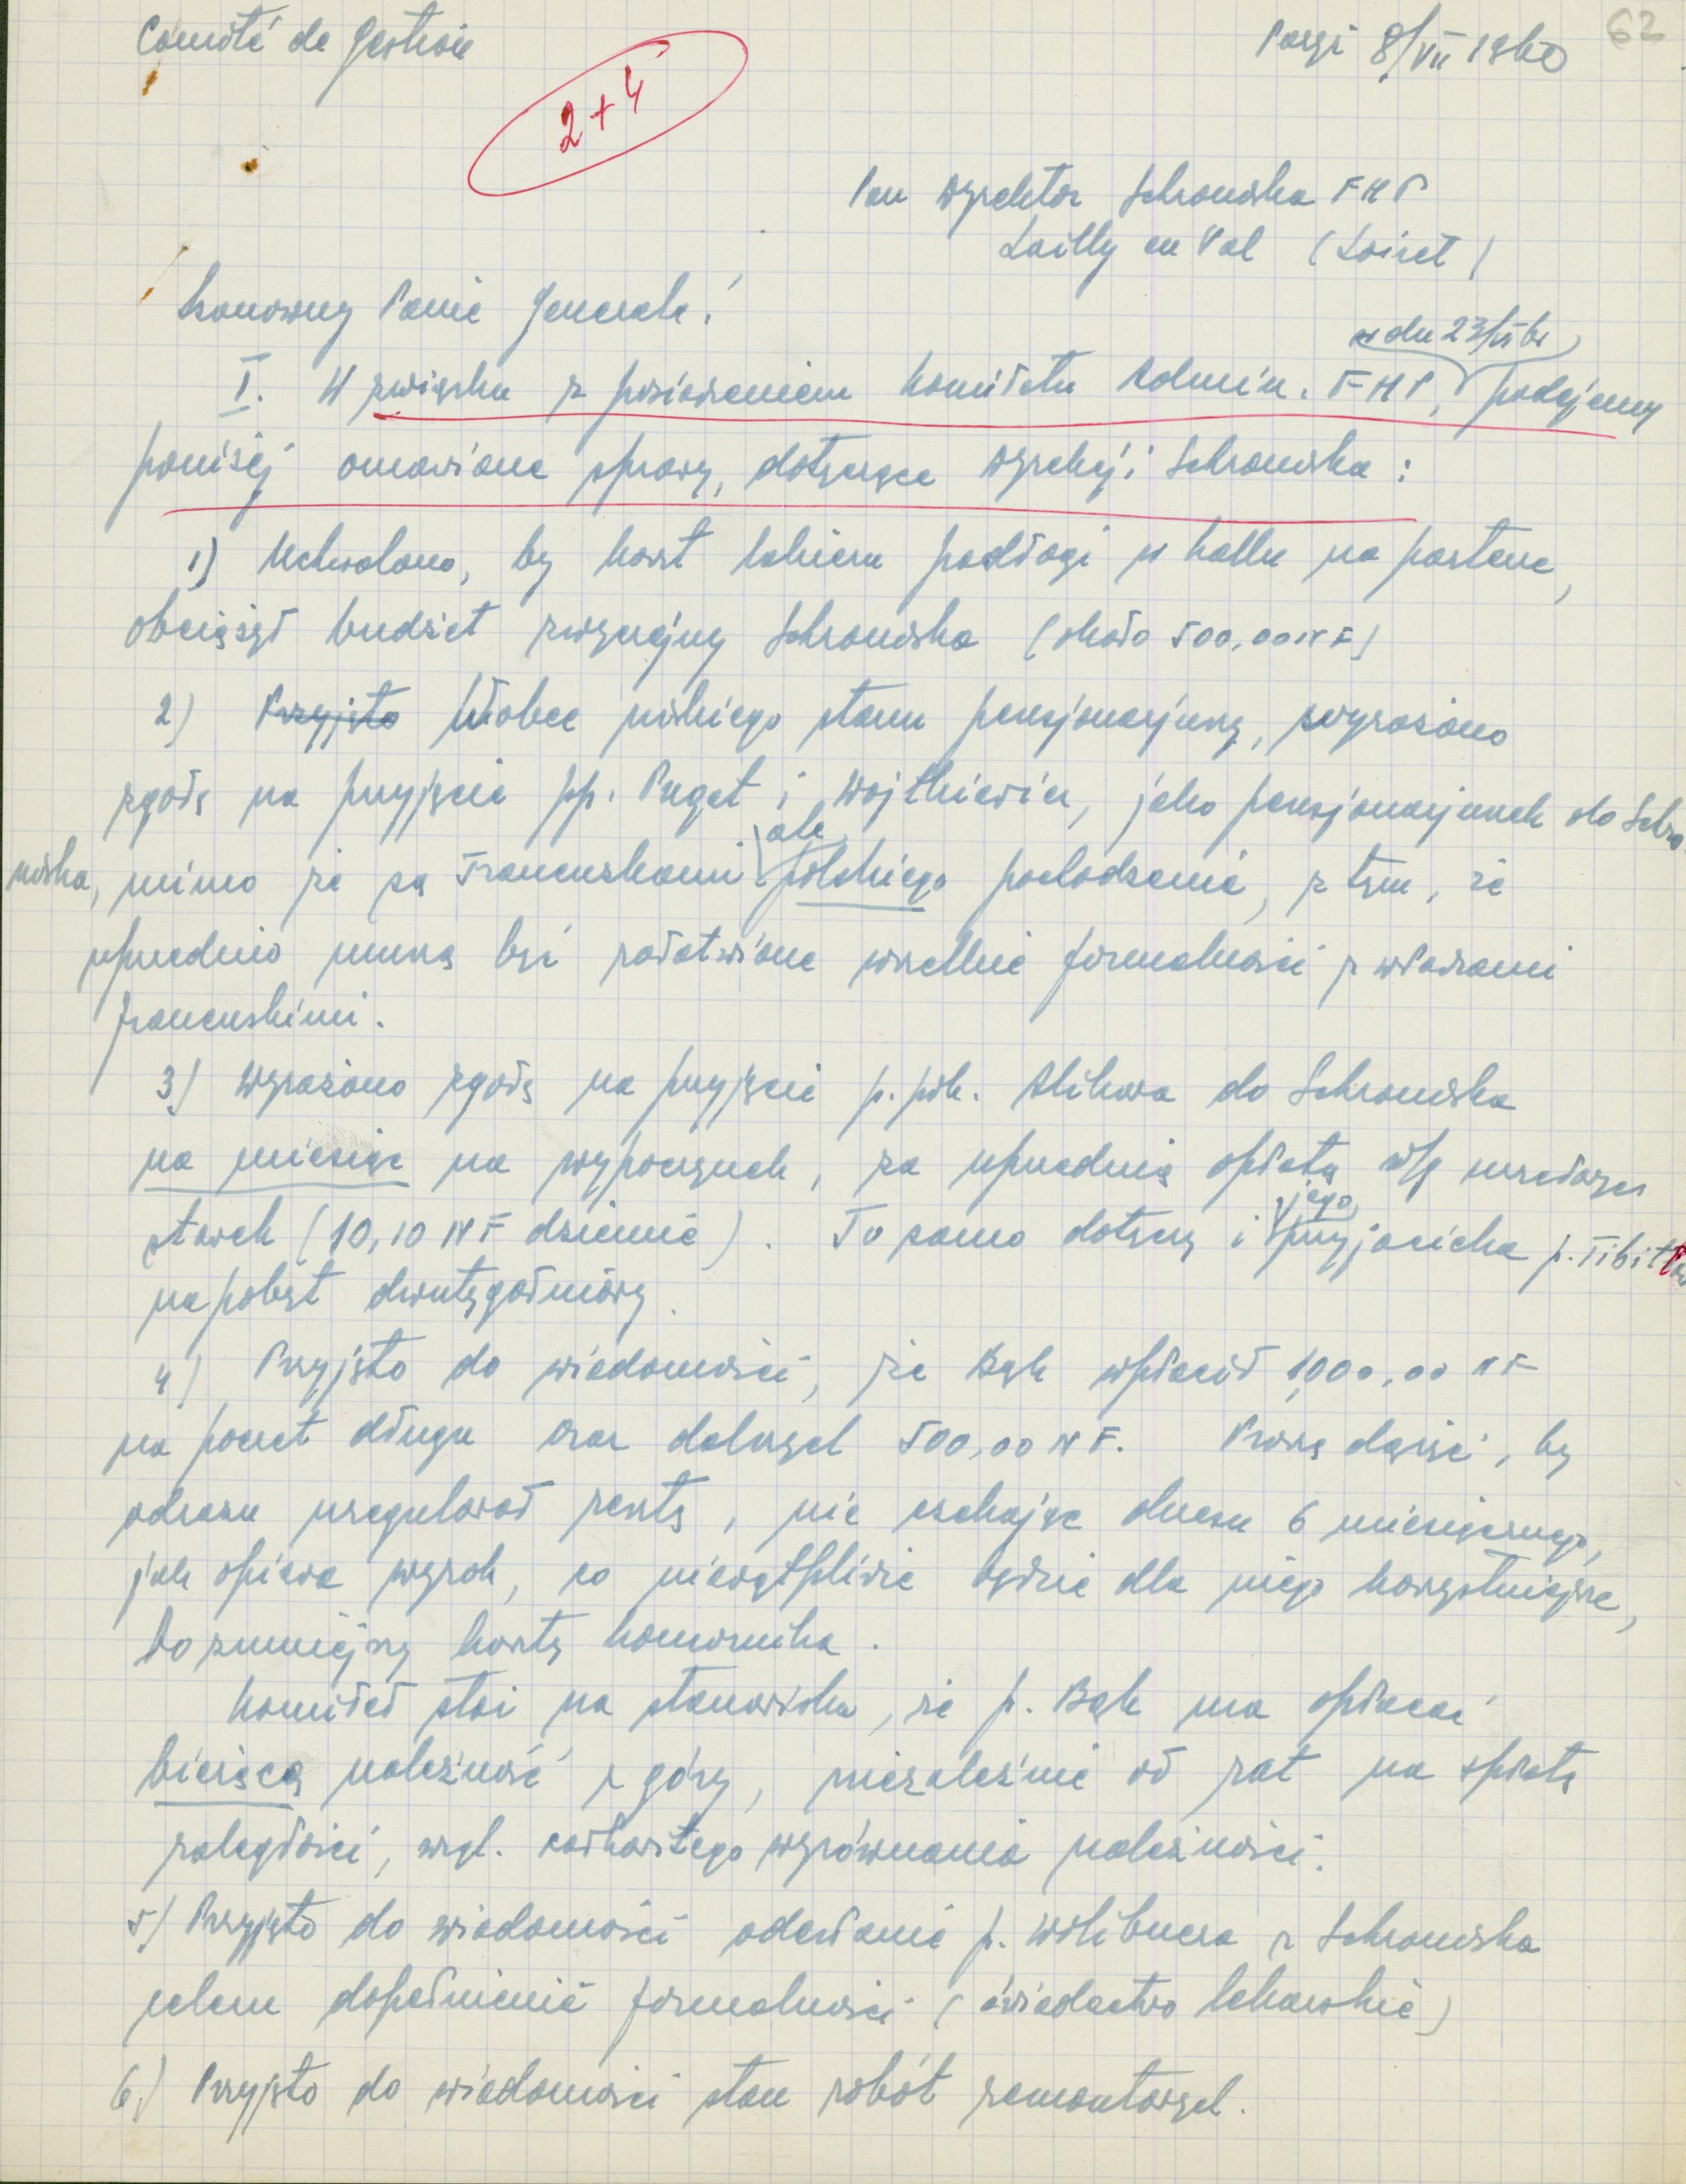 Comité de Gestion
Paryż 8/VII 1960
62
2+4
Pan Dyrektor Schroniska FHP
Lailly en Val (Loiret)
Szanowny Panie Generale!
z dn 23/VI br
I. W związku z posiedzeniem Komitetu Admin. FHP, podajemy
poniżej omówione sprawy, dotyczące Dyrekcji Schroniska:
1) Uchwalono, by koszt lakieru podłogi w hallu na parterze,
obciążył budżet zwyczajny Schroniska (około 500,00 NF)
2) Przyjęto Wobec niskiego stanu pensjonarjuszy, wyrażono
zgodę na przyjęcie pp. Puget i Wojtkiewicz, jako pensjonarjuszek do Schro
ale
niska, mimo że są Francuskami polskiego pochodzenia, z tym, że
uprzednio muszą być załatwione wszelkie formalności z władzami
francuskimi.
3) Wyrażono zgodę na przyjęcie p. płk. do Schroniska
na miesiąc na wypoczynek, za uprzednią opłatą wg
jego
stawek (10,10 NF dziennie). To samo dotyczy i przyjaciela p.
na pobyt dwutygodniowy.
4) Przyjęto do wiadomości, że Bąk wpłacił 1,000,00 NF
na poczet długu oraz dalszych 500,00 NF. Proszę dążyć, by
odrazu uregulował resztę, nie czekając okresu 6 miesięcznego,
jak opiewa wyrok, co niewątpliwie będzie dla niego korzystniejsze,
bo zmniejszy koszty komornika.
Komitet stoi na stanowisku, że p. Bąk ma opłacać
bieżącą należność z góry, niezależnie od rat na spłatę
zaległości, wzgl. całkowitego wyrównania należności.
5) Przyjęto do wiadomości odesłanie p. z Schroniska
celem dopełnienia formalności (świadectwo lekarskie)
6) Przyjęto do wiadomości stan robót remontowych.